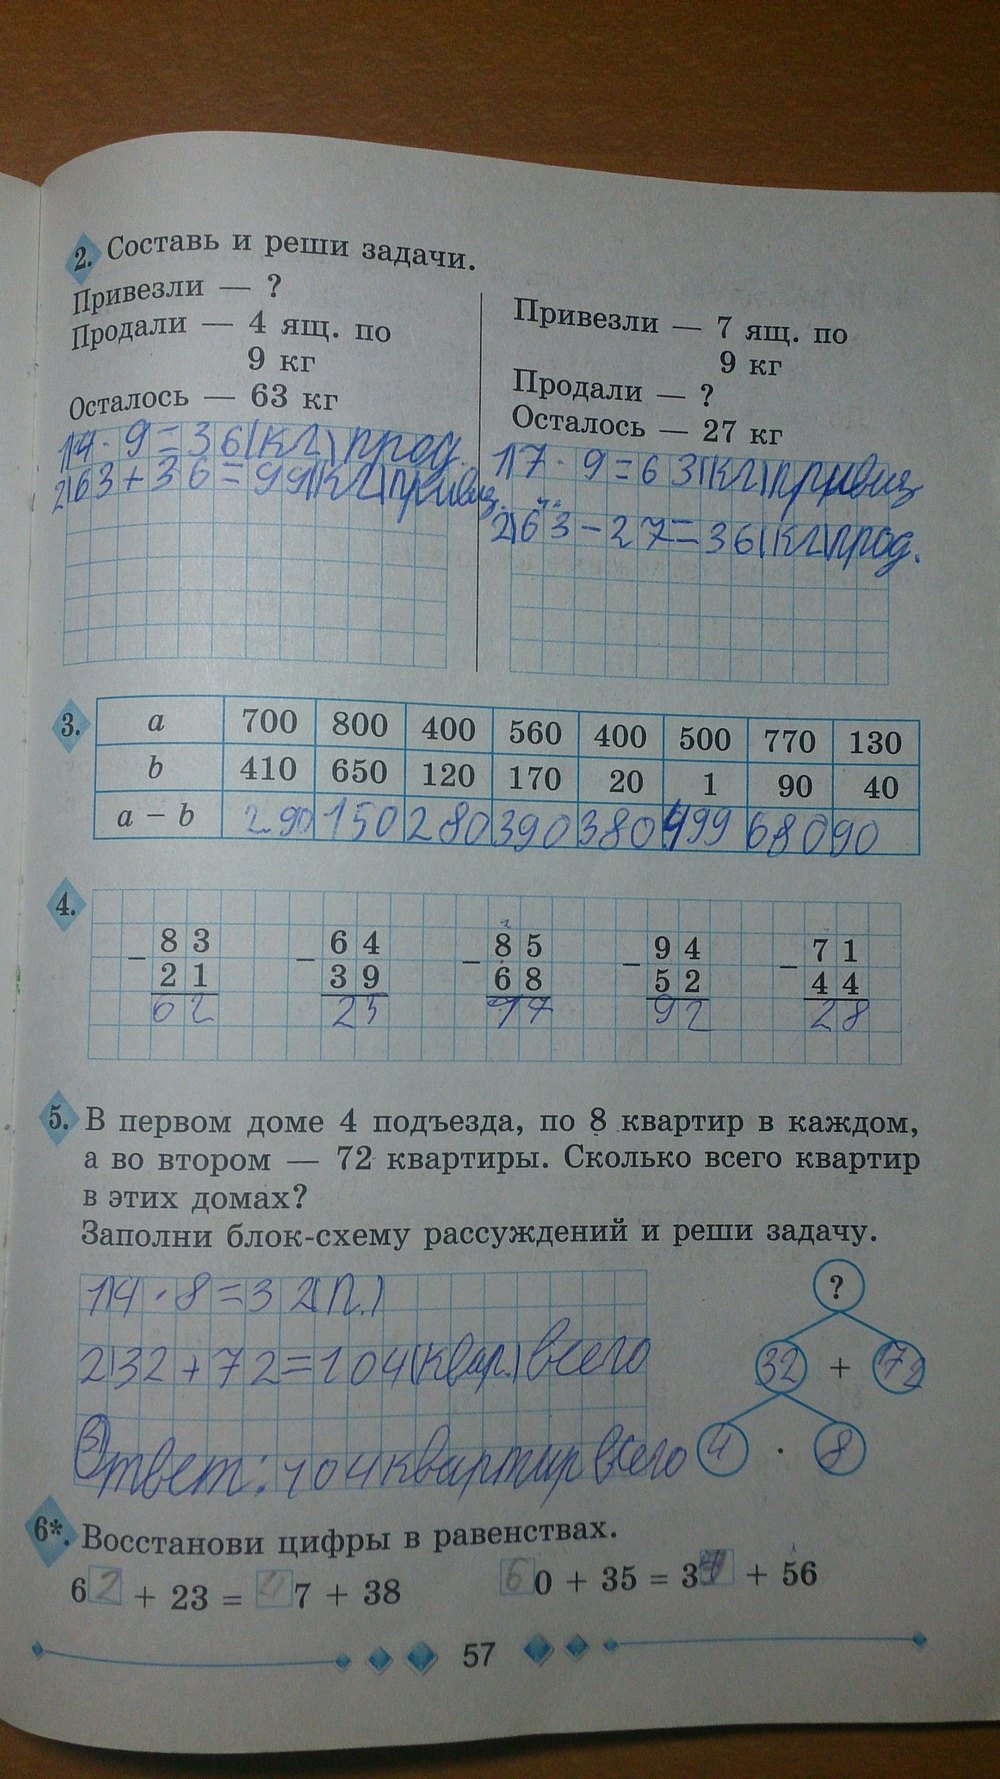 2. Составь и реши задачи.
Привезли — ?
Продали — 4 ящ. по
9 кг
Осталось — 63 кг
1)4 · 9 = 36(кг) прод.
2)63 + 36 = 99(кг)привез.
Привезли — 7 ящ. по
9 кг
Продали — ?
Осталось — 27 кг
1)7 · 9 = 63(кг)привиз
2)63 - 27 = 36(кг)прод.
3.
a 700 800 400 560 400 500 770 130
b 410 650 120 170 20 1 90 40
a – b 290 150 280 390 380 499 680 90
4.
– 83 – 64 – 85 – 94 – 71
21 39 68 52 44
62 25 17 92 28
5. В первом доме 4 подъезда, по 8 квартир в каждом,
а во втором — 72 квартиры. Сколько всего квартир
в этих домах?
Заполни блок-схему рассуждений и реши задачу.
1)4 · 8 = 32(п.)
2)32 + 72 = 104(квар.)всего
Ответ: 104 квартир всего
?
32 + 72
4 · 8
6*. Восстанови цифры в равенствах.
62 + 23 = 47 + 38
60 + 35 = 39 + 56
57